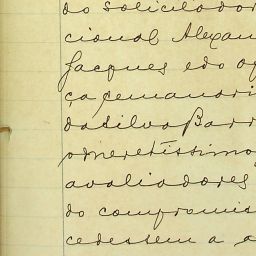 do solicitador
cional Alexan
Jacques e do of
ça semanari
da Silva Barr
o meretissimo
avaliadores
do compromis
cedessem a a